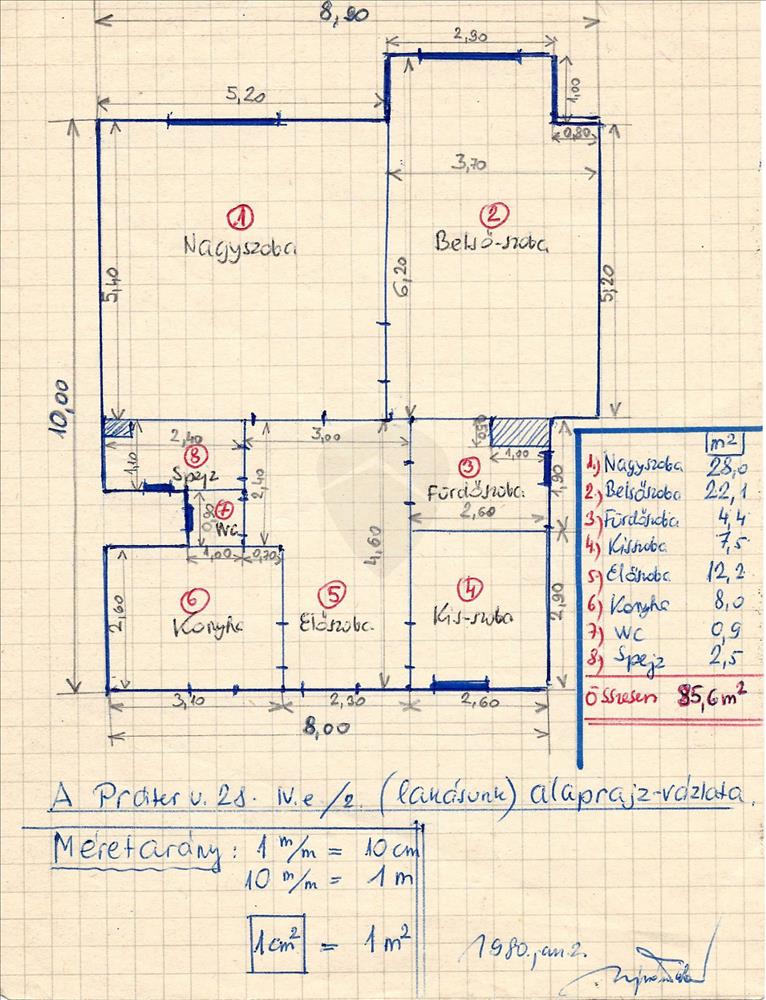 8,90
2,90
1,00
5,20
0,80
3,70
1
Nagyszoba
2
Belső-szoba
5,40
6,20
5,20
10,00
2,40
3,00
0,50
1,00
1,10
8
Spejz
2,40
3
Fürdőszoba
1,90
7
WC
2,60
1,00
0,70
4,60
2,60
6
Konyha
5
Előszoba
4
Kis-szoba
2,90
3,10
2,30
2,60
8,00
m²
1.) Nagyszoba 28,0
2.) Belsőszoba 22,1
3) Fürdőszoba 4,4
4.) Kisszoba 7,5
5) Előszoba 12,2
6) Konyha 8,0
7) WC 0,9
8) Spejz 2,5
Összesen 85,6 m²
A Práter u. 28. IV. e/2. (lakásunk) alaprajz-vázlata.
Méretarány: 1 m/m = 10 cm
10 m/m = 1 m
1 cm² = 1 m²
1980. jan. 2.